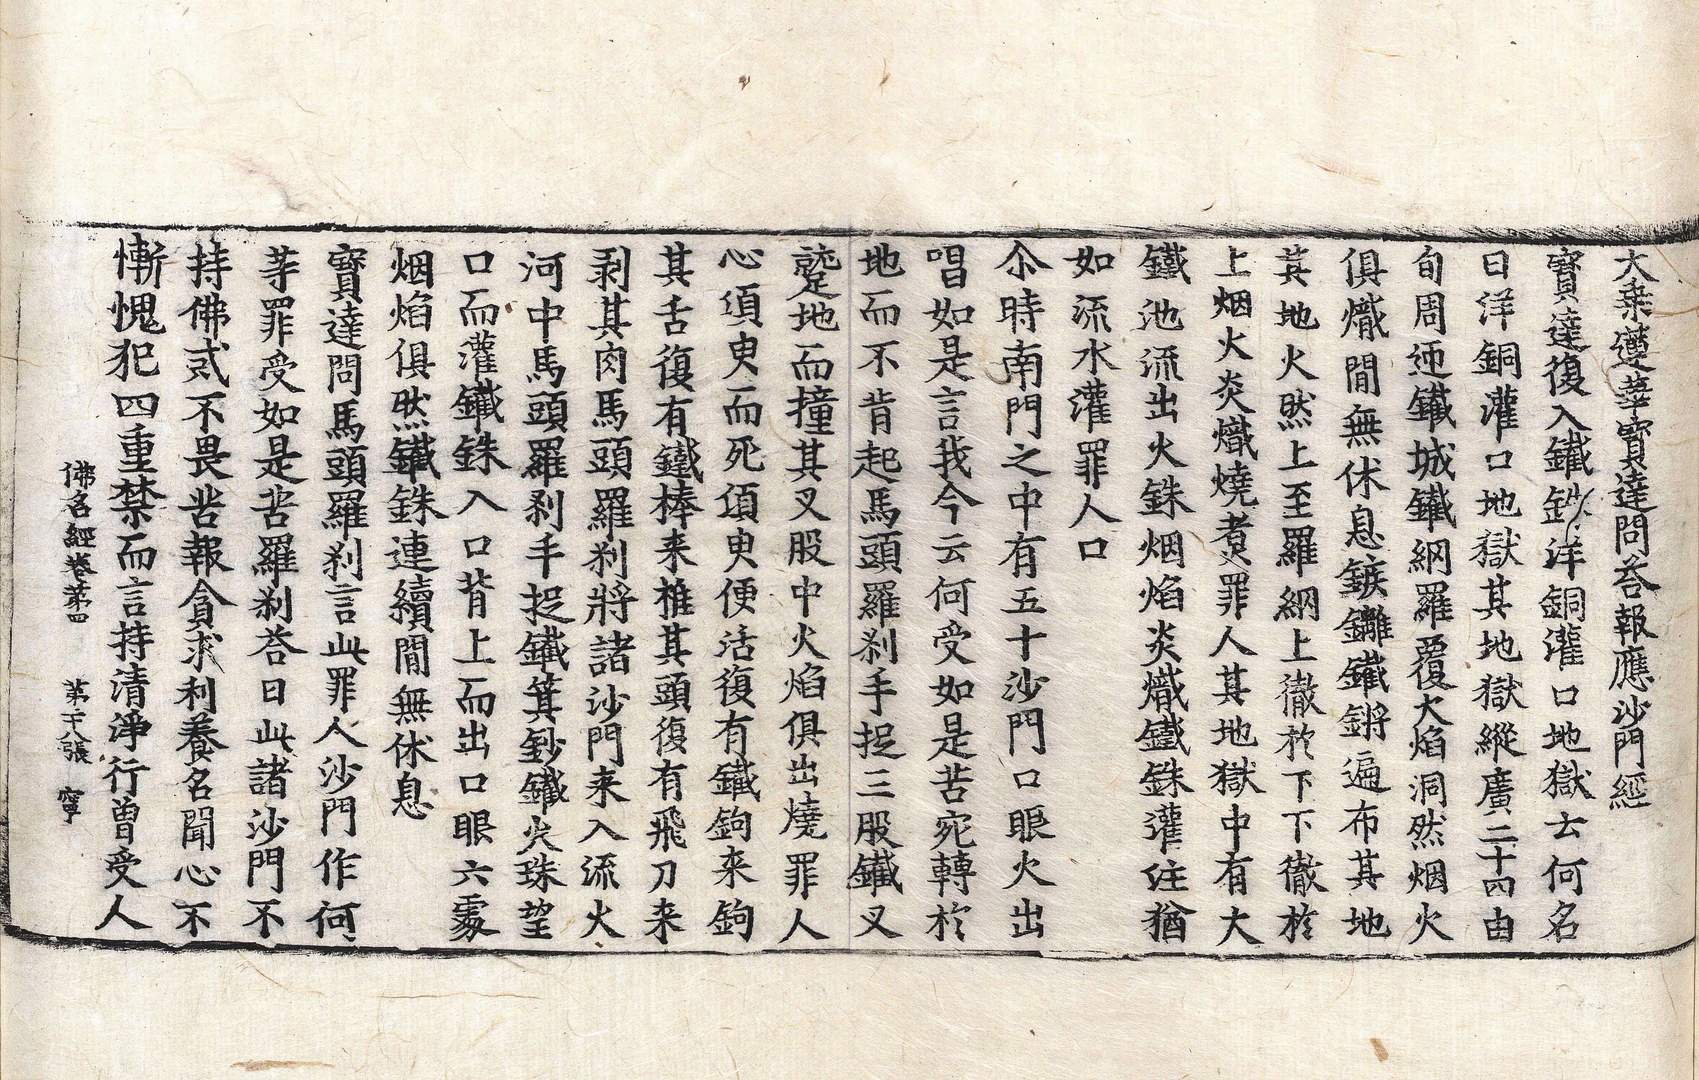 大乗蓮華寳達問荅報應沙門經
寳達復入鐵鈔洋銅灌口地獄云何名
曰洋銅灌口地獄其地獄縱廣二十四由
旬周迊鐵城鐵網羅覆大焰洞然烟火
俱熾閒無休息鏃鑗鐵鏘遍布其地
其地火然上至羅網上徹於下下徹於
上烟火炎熾燒煮罪人其地獄中有大
鐵池流出火銖烟焰炎熾鐵銖灌注猶
如流水灌罪人口
尒時南門之中有五十沙門口眼火出
唱如是言我今云何受如是苦宛轉於
地而不肯起馬頭羅刹手捉三股鐵叉
䠞地而撞其叉股中火焰俱出燒罪人
心須臾而死須臾便活復有鐵鉤来鉤
其舌復有鐵棒来椎其頭復有飛刀来
剥其肉馬頭羅刹將諸沙門来入流火
河中馬頭羅刹手捉鐵箕鈔鐵火珠望
口而灌鐵銖入口背上而出口眼六處
烟焰俱然鐵銖連續閒無休息
寳達問馬頭羅刹言此罪人沙門作何
䓁罪受如是苦羅刹荅曰此諸沙門不
持佛戒不畏苦報貪求利養名聞心不
慚愧犯四重禁而言持清淨行曽受人
佛名經卷第四 第二十八張 寧